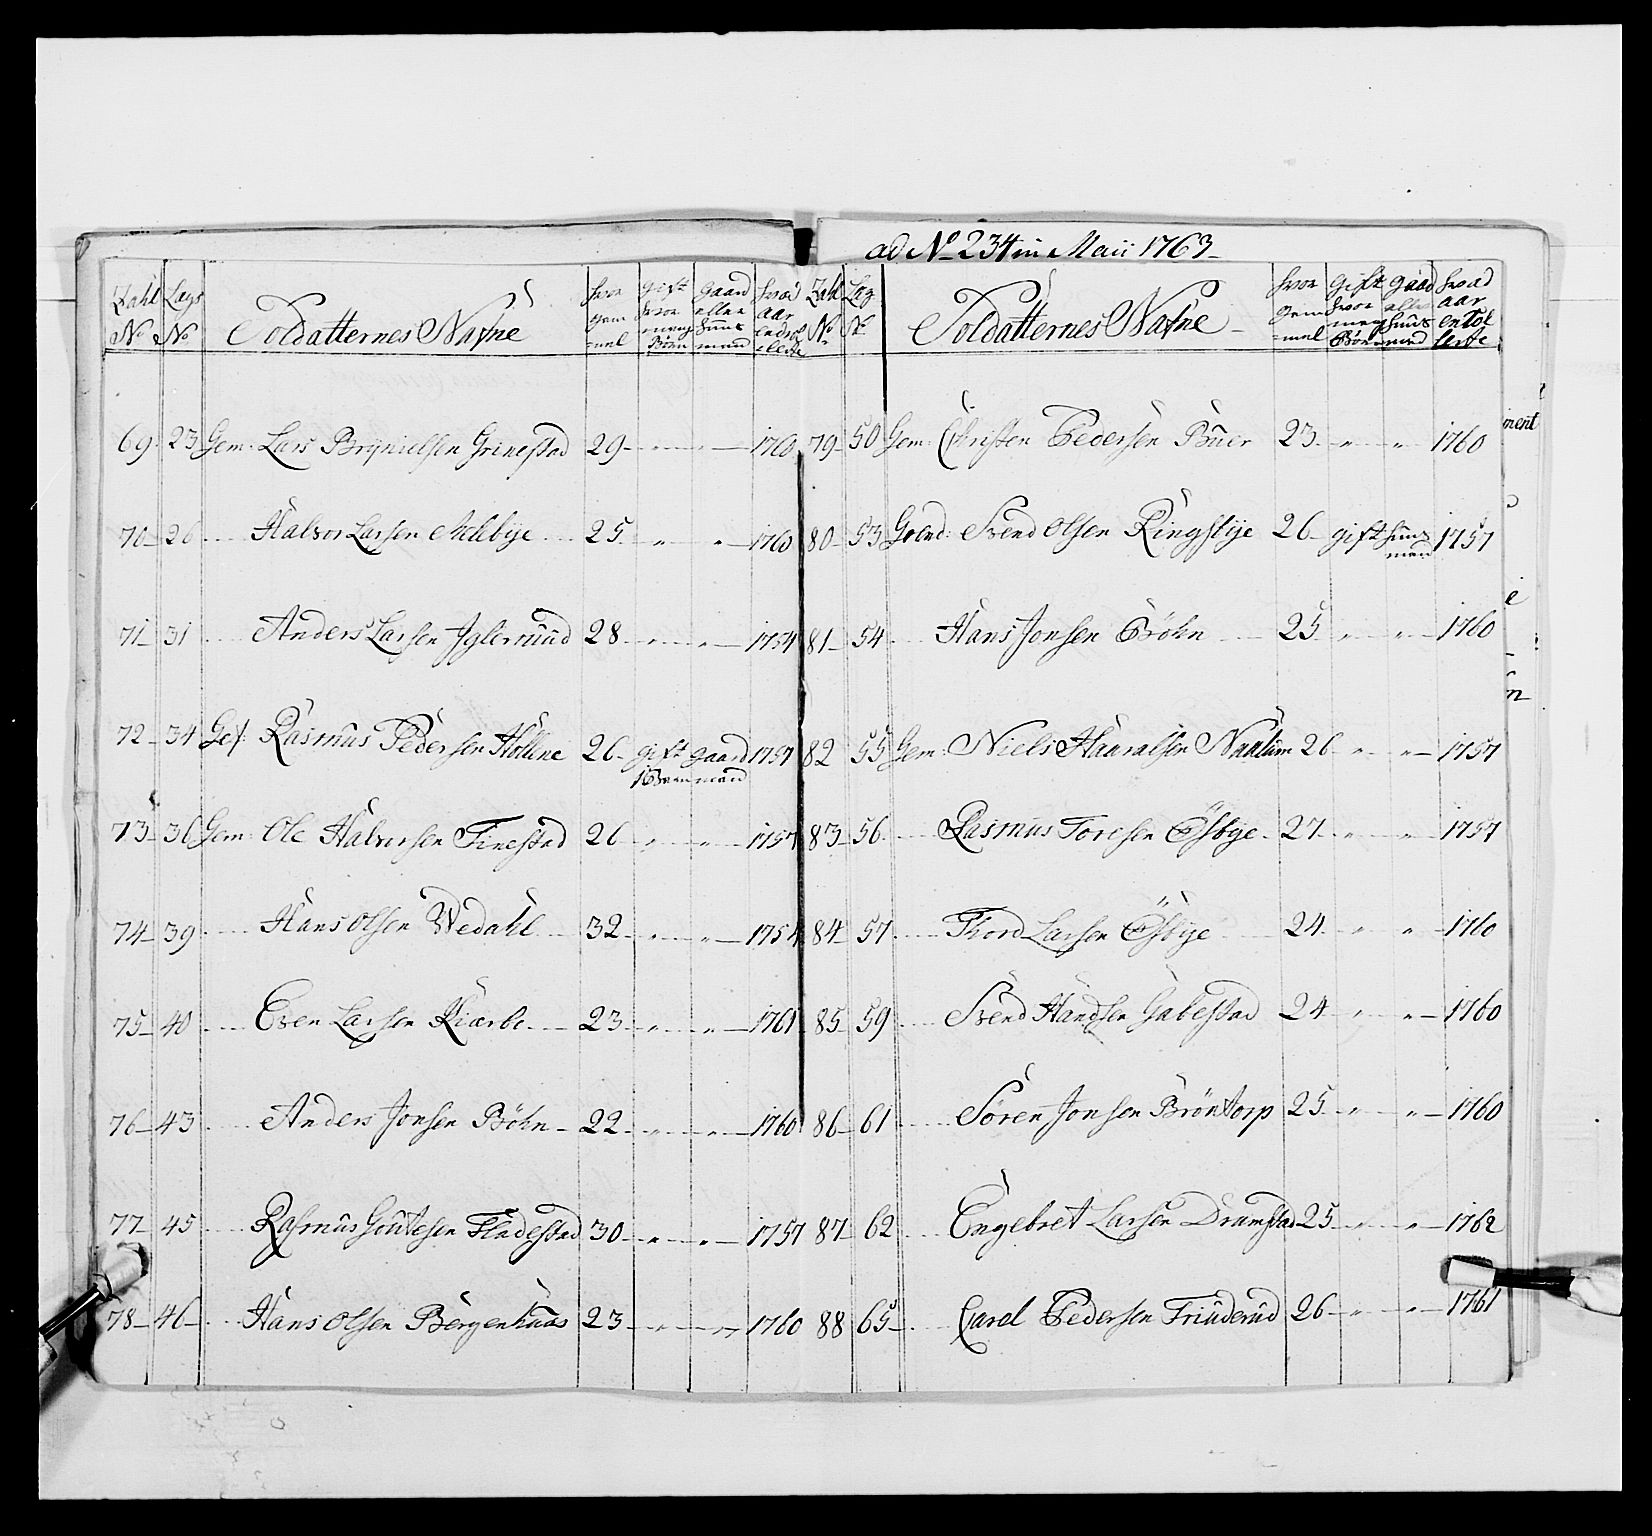 ad No 234 in Maii 1763
Zahl No Lags No Soldatternes Nafne hvor gam-mel gift hvor mang Börn gaard eller huus mand hvad aar
69 23 Gem: Lars Brynielsen Grinestad 29 " " 1760
70 26 Halvor Larsen Mellebye 25 " " 1760
71 31 Anders Larsen Iglerund 28 " " 1754
72 34 Gef: Rasmus Pedersen Hollene 26 gift 1 Barn gaard mand 1757
73 36 Gem: Ole Halvorsen Finestad 26 " " 1757
74 39 Hans Olsen Wedahl 32 " " 1754
75 40 Even Larsen Kiærbo 23 " " 1761
76 43 Anders Jonsen Böhn 22 " " 1760
77 45 Rasmus Goutesen Fladestad 30 " " 1757
78 46 Hans Olsen Bergenhuus 23 " " 1760
Zahl No Lag No Soldatternes Nafne hvor gam-mel gift hvor mang Börn gaard eller huus mand hvad aar en Rol lerte
79 50 Gem: Christen Pedersen Buer 23 " " 1760
80 53 Svend Olsen Ringsbye 26 gift huus mand 1757
81 54 Hans Jonsen Bröhn 25 " " 1760
82 55 Gem: Niels Haaralsen Naalum 26 " " 1757
83 56 Rasmus Toresen Ösbye 27 " " 1757
84 57 Thord Larsen Ösbye 24 " " 1760
85 59 Svend Handsen Gabestad 24 " " 1760
86 61 Sören Jonsen Bröntorp 25 " " 1760
87 62 Engebret Larsen Dramstad 25 " " 1762
88 65 Carel Pedersen Friuderud 26 " " 1761